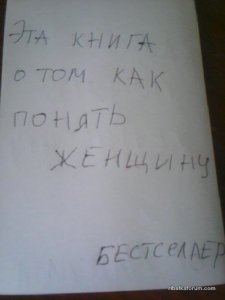 ЭТА КНИГА
О ТОМ КАК
ПОНЯТЬ
ЖЕНЩИНУ
БЕСТСЕЛЛЕР
ribalkaforum.com